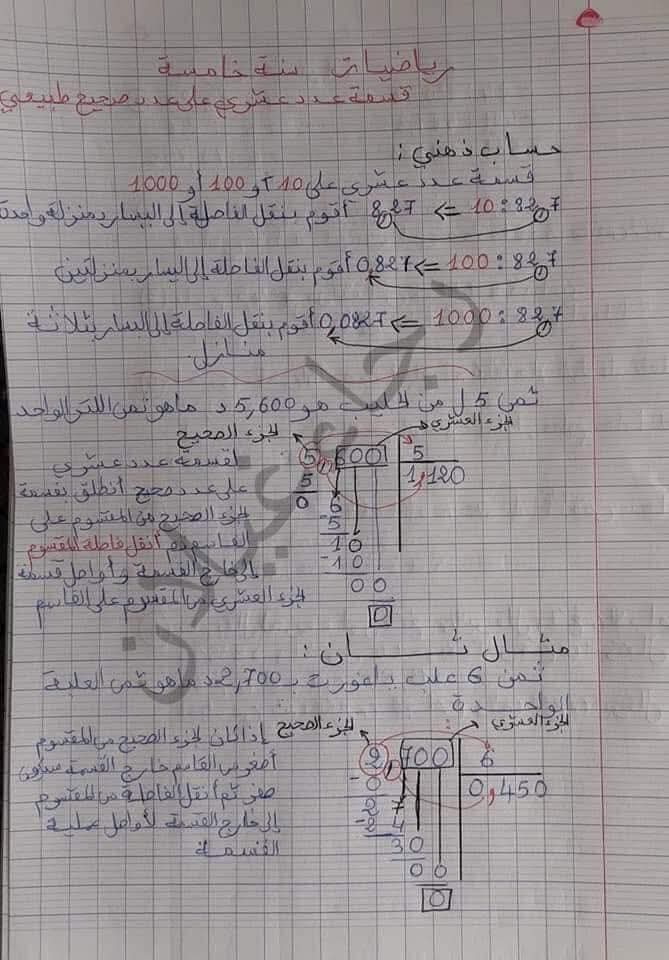 رياضيات سنة خامسة
قسمة عدد عشري على عدد صحيح طبيعي
حساب ذهني :
قسمة عدد عشري على 10 أو 100 أو 1000
82,7 : 10 => 8,27 أقوم بنقل الفاصلة إلى اليسار بمنزلة واحدة
82,7 : 100 => 0,827 أقوم بنقل الفاصلة إلى اليسار بمنزلتين
82,7 : 1000 => 0,0827 أقوم بنقل الفاصلة إلى اليسار بثلاثة
منازل.
ثمن 5 ل من الحليب هو 5,600 د ما هو ثمن اللتر الواحد
الجزء العشري
الجزء الصحيح
لقسمة عدد عشري
على عدد صحيح أنطلق بقسمة
الجزء الصحيح من المقسوم على
القاسم ثم أنقل فاصلة المقسوم
إلى خارج القسمة و أواصل قسمة
الجزء العشري من المقسوم على القاسم
5,600 5
5 1,120
0 6
-5
10
-10
00
0
مثال ثان :
ثمن 6 علب ياغورت بـ 2,700 د ما هو ثمن العلبة
الواحدة :
الجزء العشري
الجزء الصحيح
إذا كان الجزء الصحيح من المقسوم
أصغر من القاسم خارج القسمة يساوي
صفر ثم أنقل الفاصلة من المقسوم
إلى خارج القسمة لأواصل عملية
القسمة
2,700 6
-0 0,450
2 7
-2 4
30
00
0